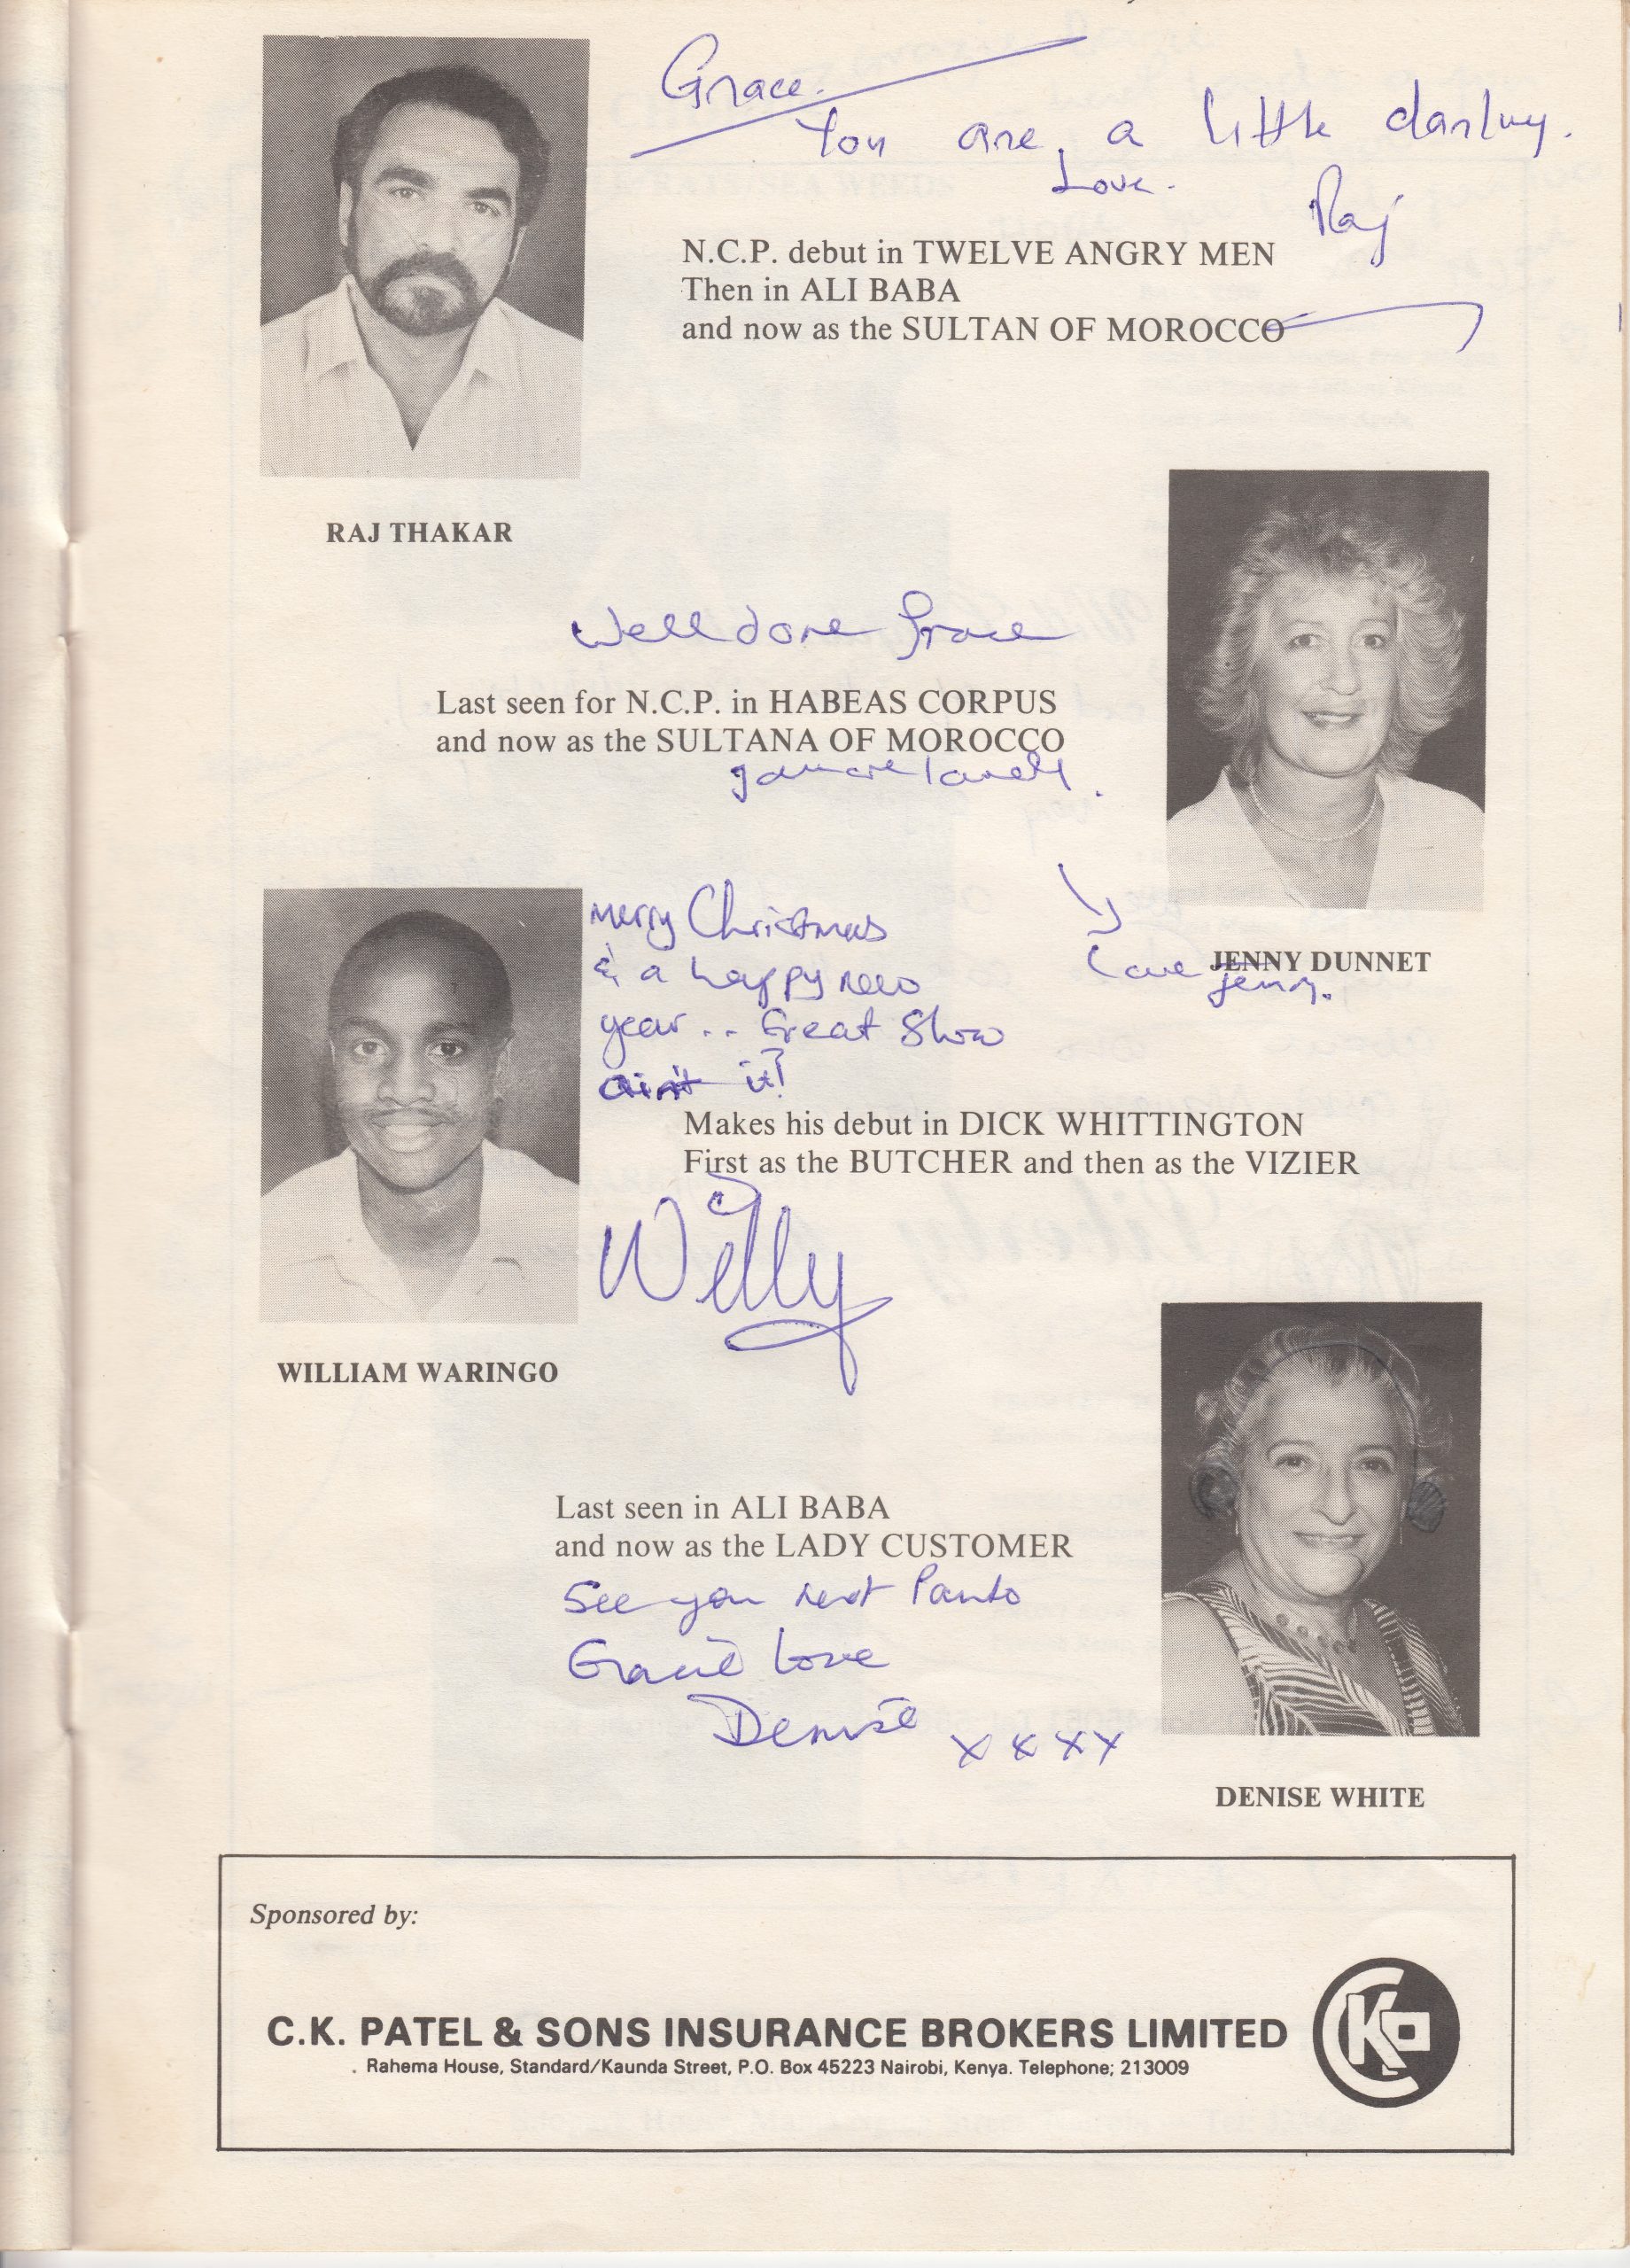 Grace.
You are a little darling.
Love.
Raj
N.C.P. debut in TWELVE ANGRY MEN
Then in ALI BABA
and now as the SULTAN OF MOROCCO
RAJ THAKAR
Well done Grace
Last seen for N.C.P. in HABEAS CORPUS
and now as the SULTANA OF MOROCCO
you are lovely.
JENNY DUNNET
Love Jenny.
Merry Christmas
& a happy new
year.. Great Show
ain't it?
Makes his debut in DICK WHITTINGTON
First as the BUTCHER and then as the VIZIER
Willy
WILLIAM WARINGO
Last seen in ALI BABA
and now as the LADY CUSTOMER
See you next Panto
Gracie love
Denise xxxx
DENISE WHITE
Sponsored by:
C.K. PATEL & SONS INSURANCE BROKERS LIMITED
Rahema House, Standard/Kaunda Street, P.O. Box 45223 Nairobi, Kenya. Telephone; 213009